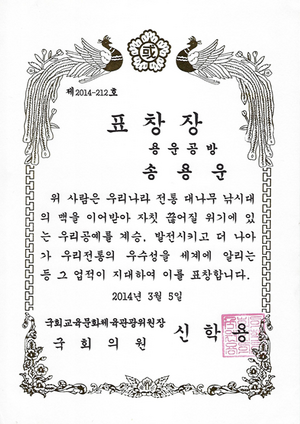 國
제2014-212호
표창장
용운공방
송용운
위 사람은 우리나라 전통 대나무 낚시대
의 맥을 이어받아 자칫 끊어질 위기에 있
는 우리공예를 계승, 발전시키고 더 나아
가 우리전통의 우수성을 세계에 알리는
등 그 업적이 지대하여 이를 표창합니다.
2014년 3월 5일
국회교육문화체육관광위원장
국회의원 신학용